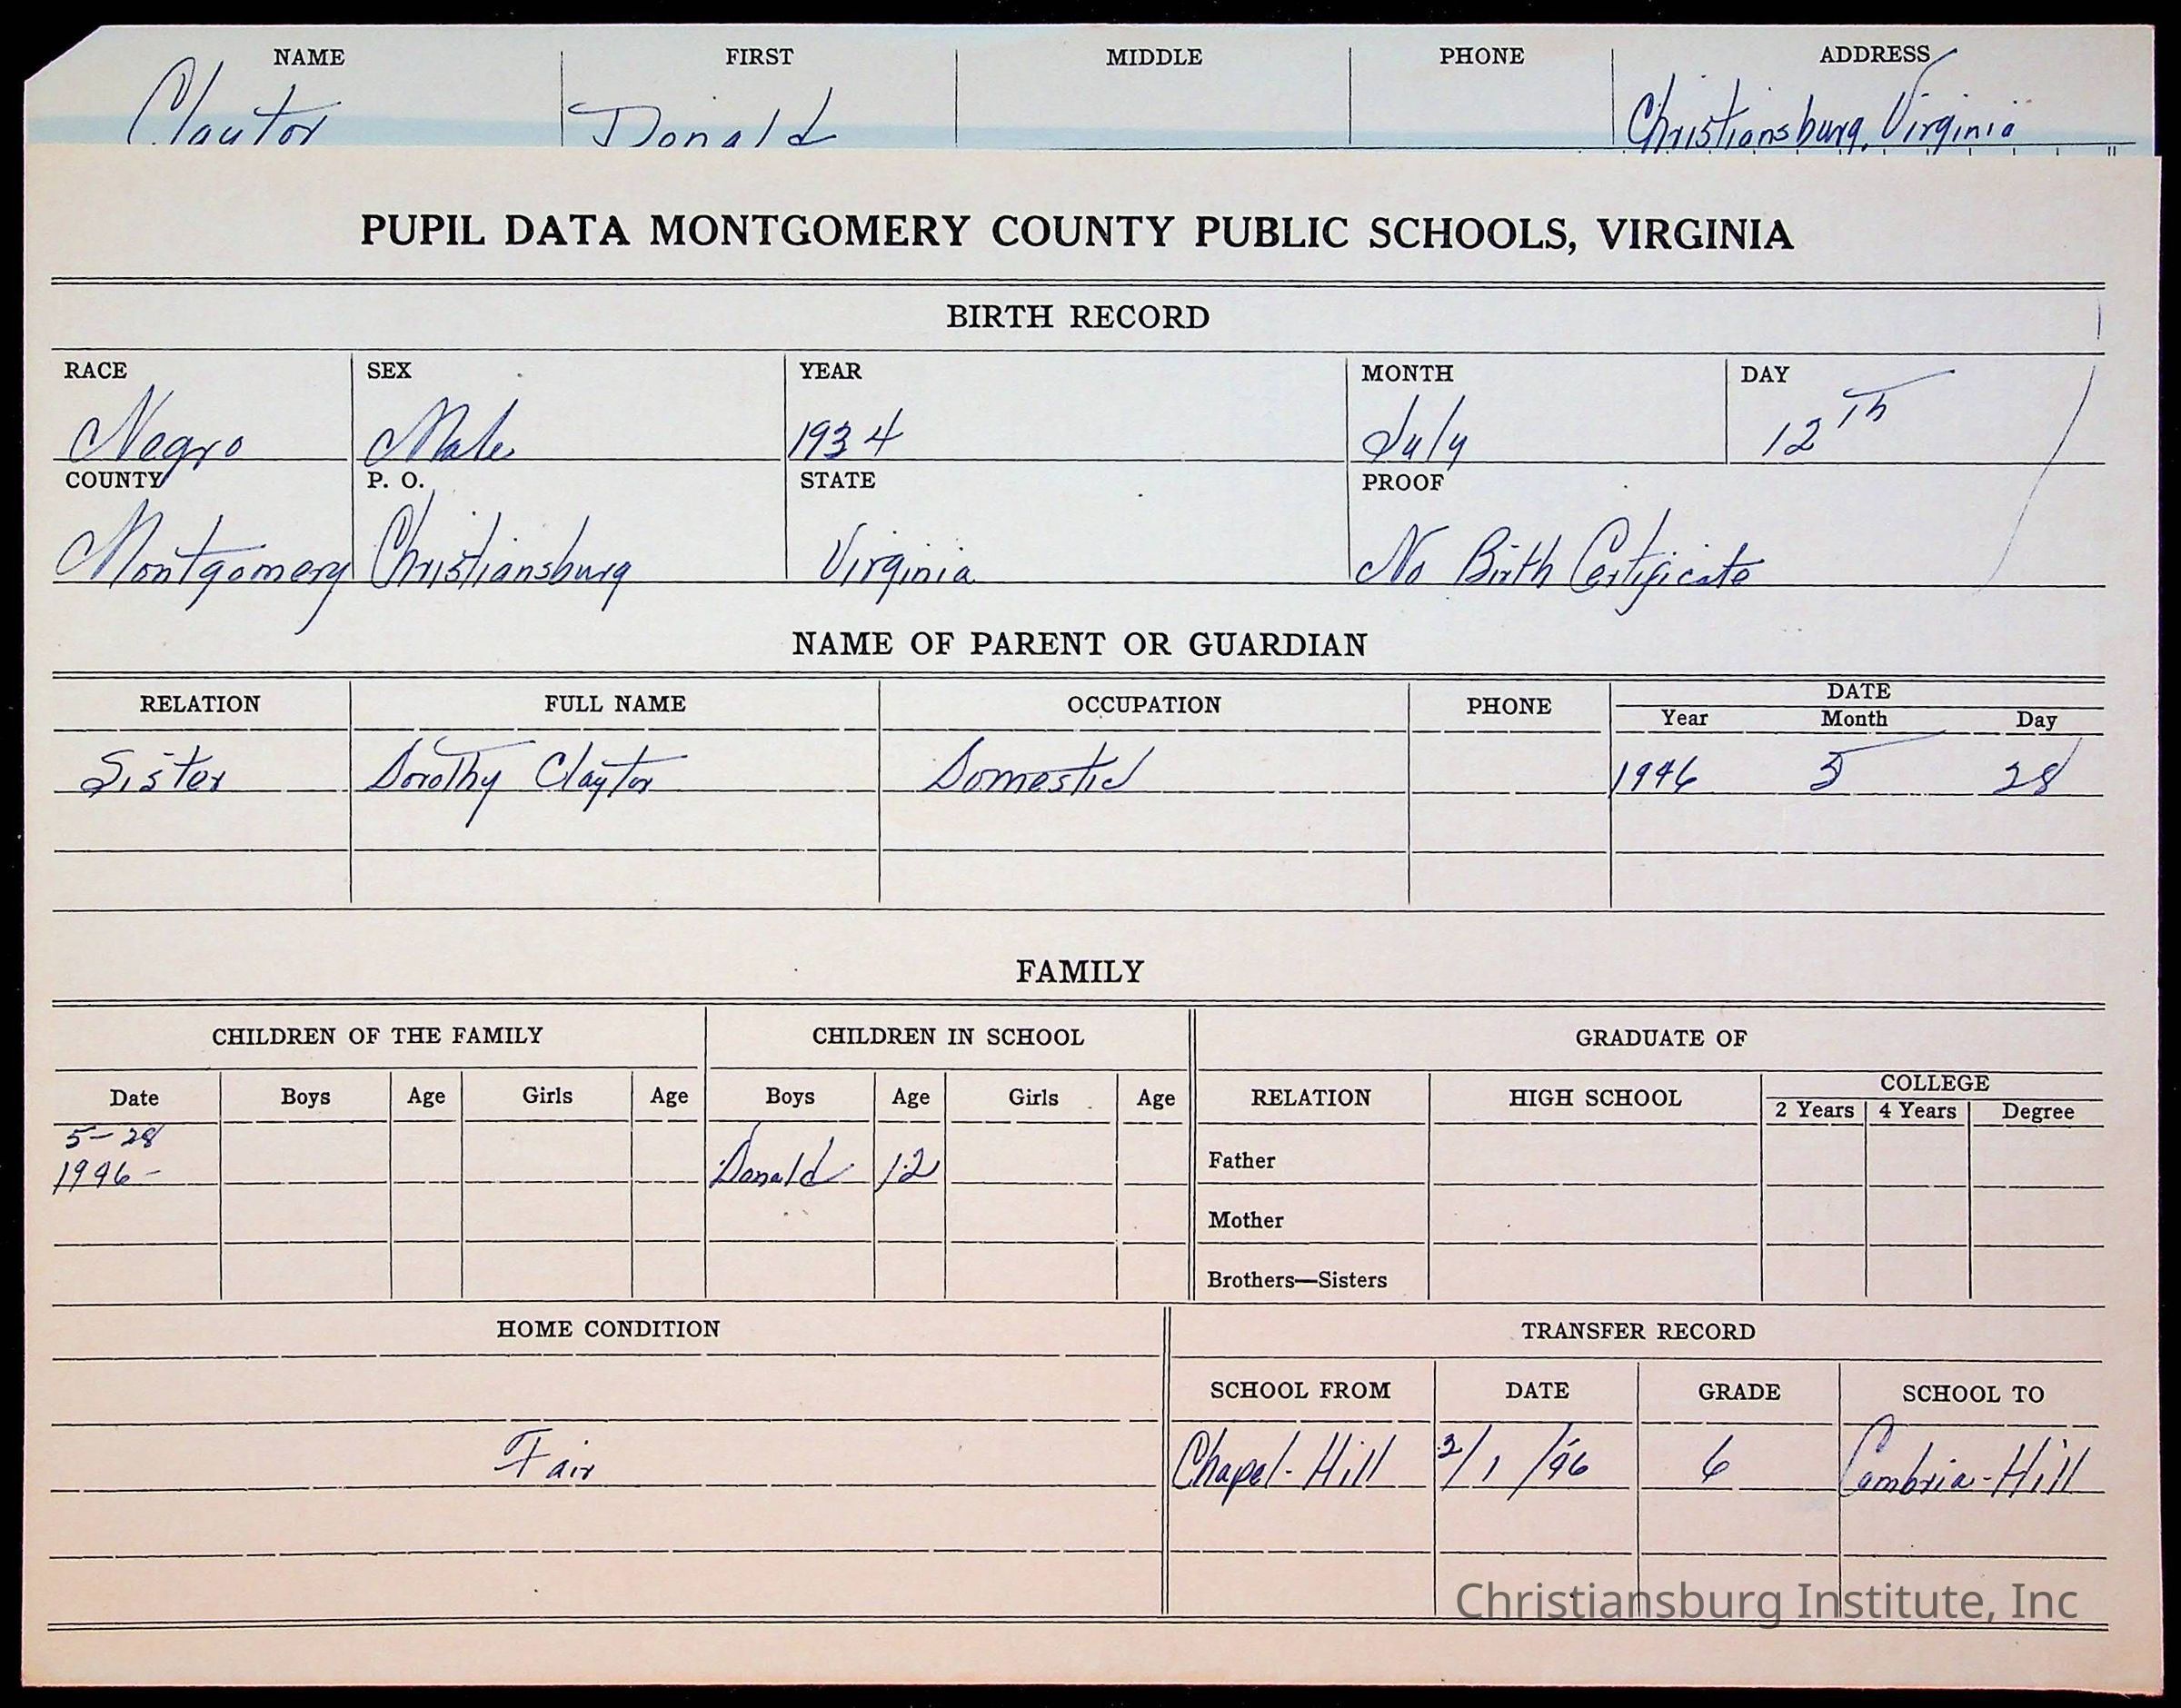 NAME FIRST MIDDLE PHONE ADDRESS
Claytor Donald Christiansburg, Virginia
PUPIL DATA MONTGOMERY COUNTY PUBLIC SCHOOLS, VIRGINIA
BIRTH RECORD
RACE SEX YEAR MONTH DAY
Negro Male 1934 July 12th
COUNTY P. O. STATE PROOF
Montgomery Christiansburg Virginia No Birth Certificate
NAME OF PARENT OR GUARDIAN
RELATION FULL NAME OCCUPATION PHONE DATE
Year Month Day
Sister Dorothy Claytor Domestic 1946 5 28
FAMILY
CHILDREN OF THE FAMILY CHILDREN IN SCHOOL GRADUATE OF
Date Boys Age Girls Age Boys Age Girls Age RELATION HIGH SCHOOL COLLEGE
2 Years 4 Years Degree
5-28
1946- Donald 12 Father
Mother
Brothers—Sisters
HOME CONDITION TRANSFER RECORD
SCHOOL FROM DATE GRADE SCHOOL TO
Fair Chapel-Hill 2/1/46 6 Cambria-Hill
Christiansburg Institute, Inc